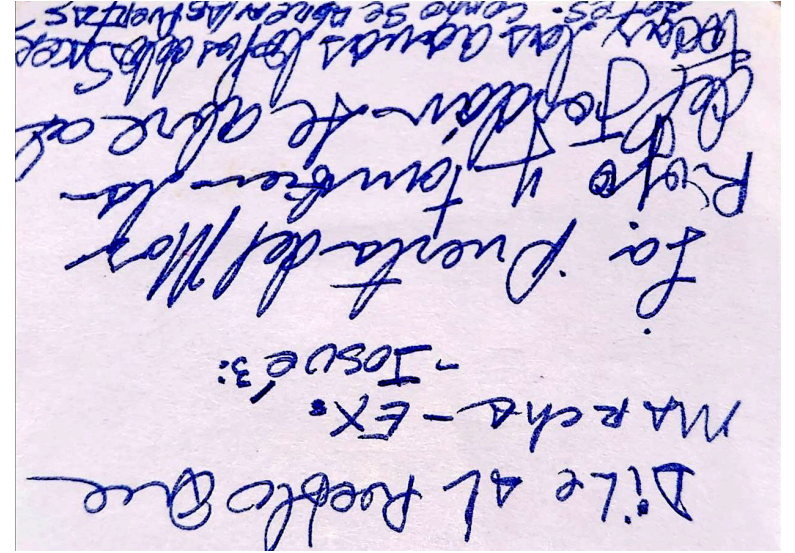 Dile al Pueblo Que
Marcha - EX.
- Josué 3:
La Puerta del Mar
Rojo y tambien la
del Jordán se abre al
las aguas delos Sacer
dotes. como se las Puertas